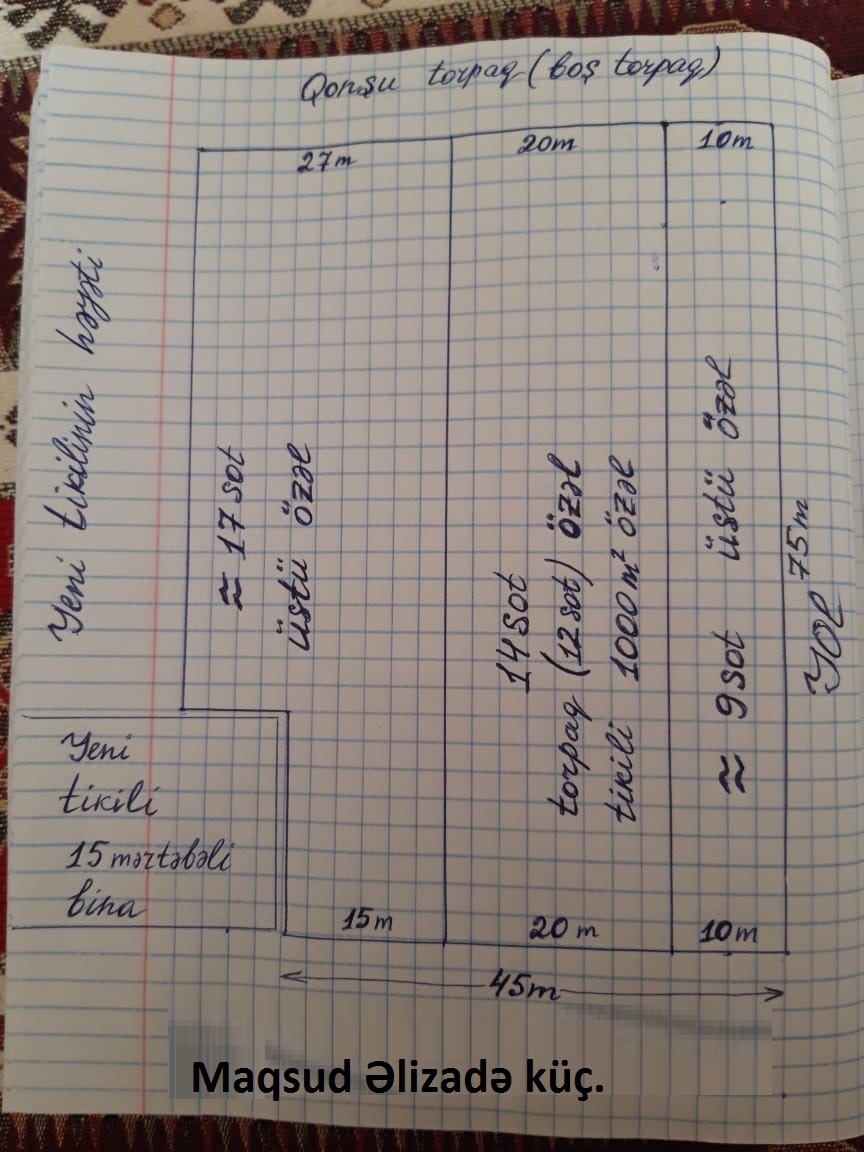 Qonşu torpaq (boş torpaq)
27m
20m
10m
Yeni tikilinin həyəti
≈ 17 sot
üstü özəl
14 sot
torpaq (12 sot) özəl
tikili 1000 m² özəl
≈ 9 sot üstü özəl
YOL 75m
Yeni
tikili
15 mərtəbəli
bina
15m
20m
10m
45m
Maqsud Əlizadə küç.